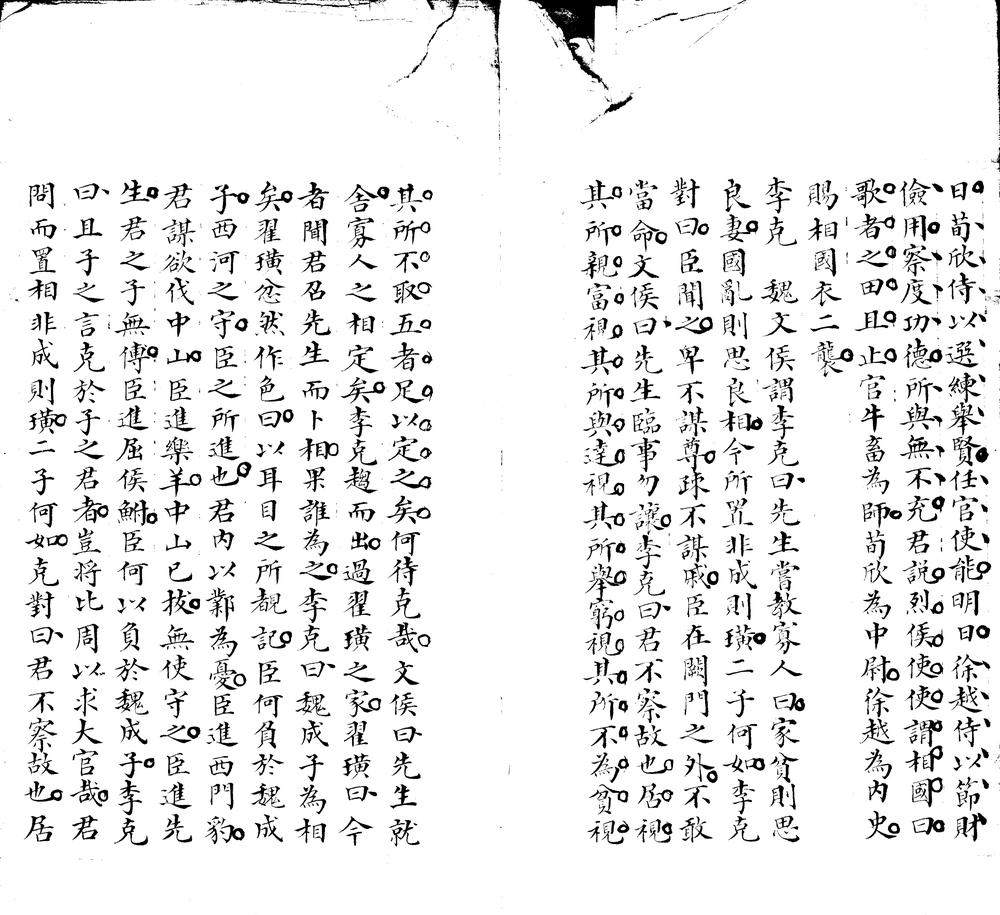 日荀欣侍以選練舉賢任官使能明日徐越侍以節財
儉用察度功德所與無不充君説烈侯使使謂相國曰
歌者之田且止官牛畜為師荀欣為中尉徐越為内史
賜相國衣二襲
李克　魏文侯謂李克曰先生嘗教寡人曰家貧則思
良妻國亂則思良相今所置非成則璜二子何如李克
對曰臣聞之卑不謀尊疎不謀戚臣在闕門之外不敢
當命文侯曰先生臨事勿讓李克曰君不察故也居視
其所親富視其所與達視其所舉窮視其所不為貧視
其所不取五者足以定之矣何待克哉文侯曰先生就
舍寡人之相定矣李克趨而出過翟璜之家翟璜曰今
者聞君召先生而卜相果誰為之李克曰魏成子為相
矣翟璜忿然作色曰以耳目之所覩記臣何負於魏成
子西河之守臣之所進也君内以鄴為憂臣進西門豹
君謀欲伐中山臣進樂羊中山已拔無使守之臣進先
生君之子無傅臣進屈侯鮒臣何以負於魏成子李克
曰且子之言克於子之君者豈将比周以求大官哉君
問而置相非成則璜二子何如克對曰君不察故也居